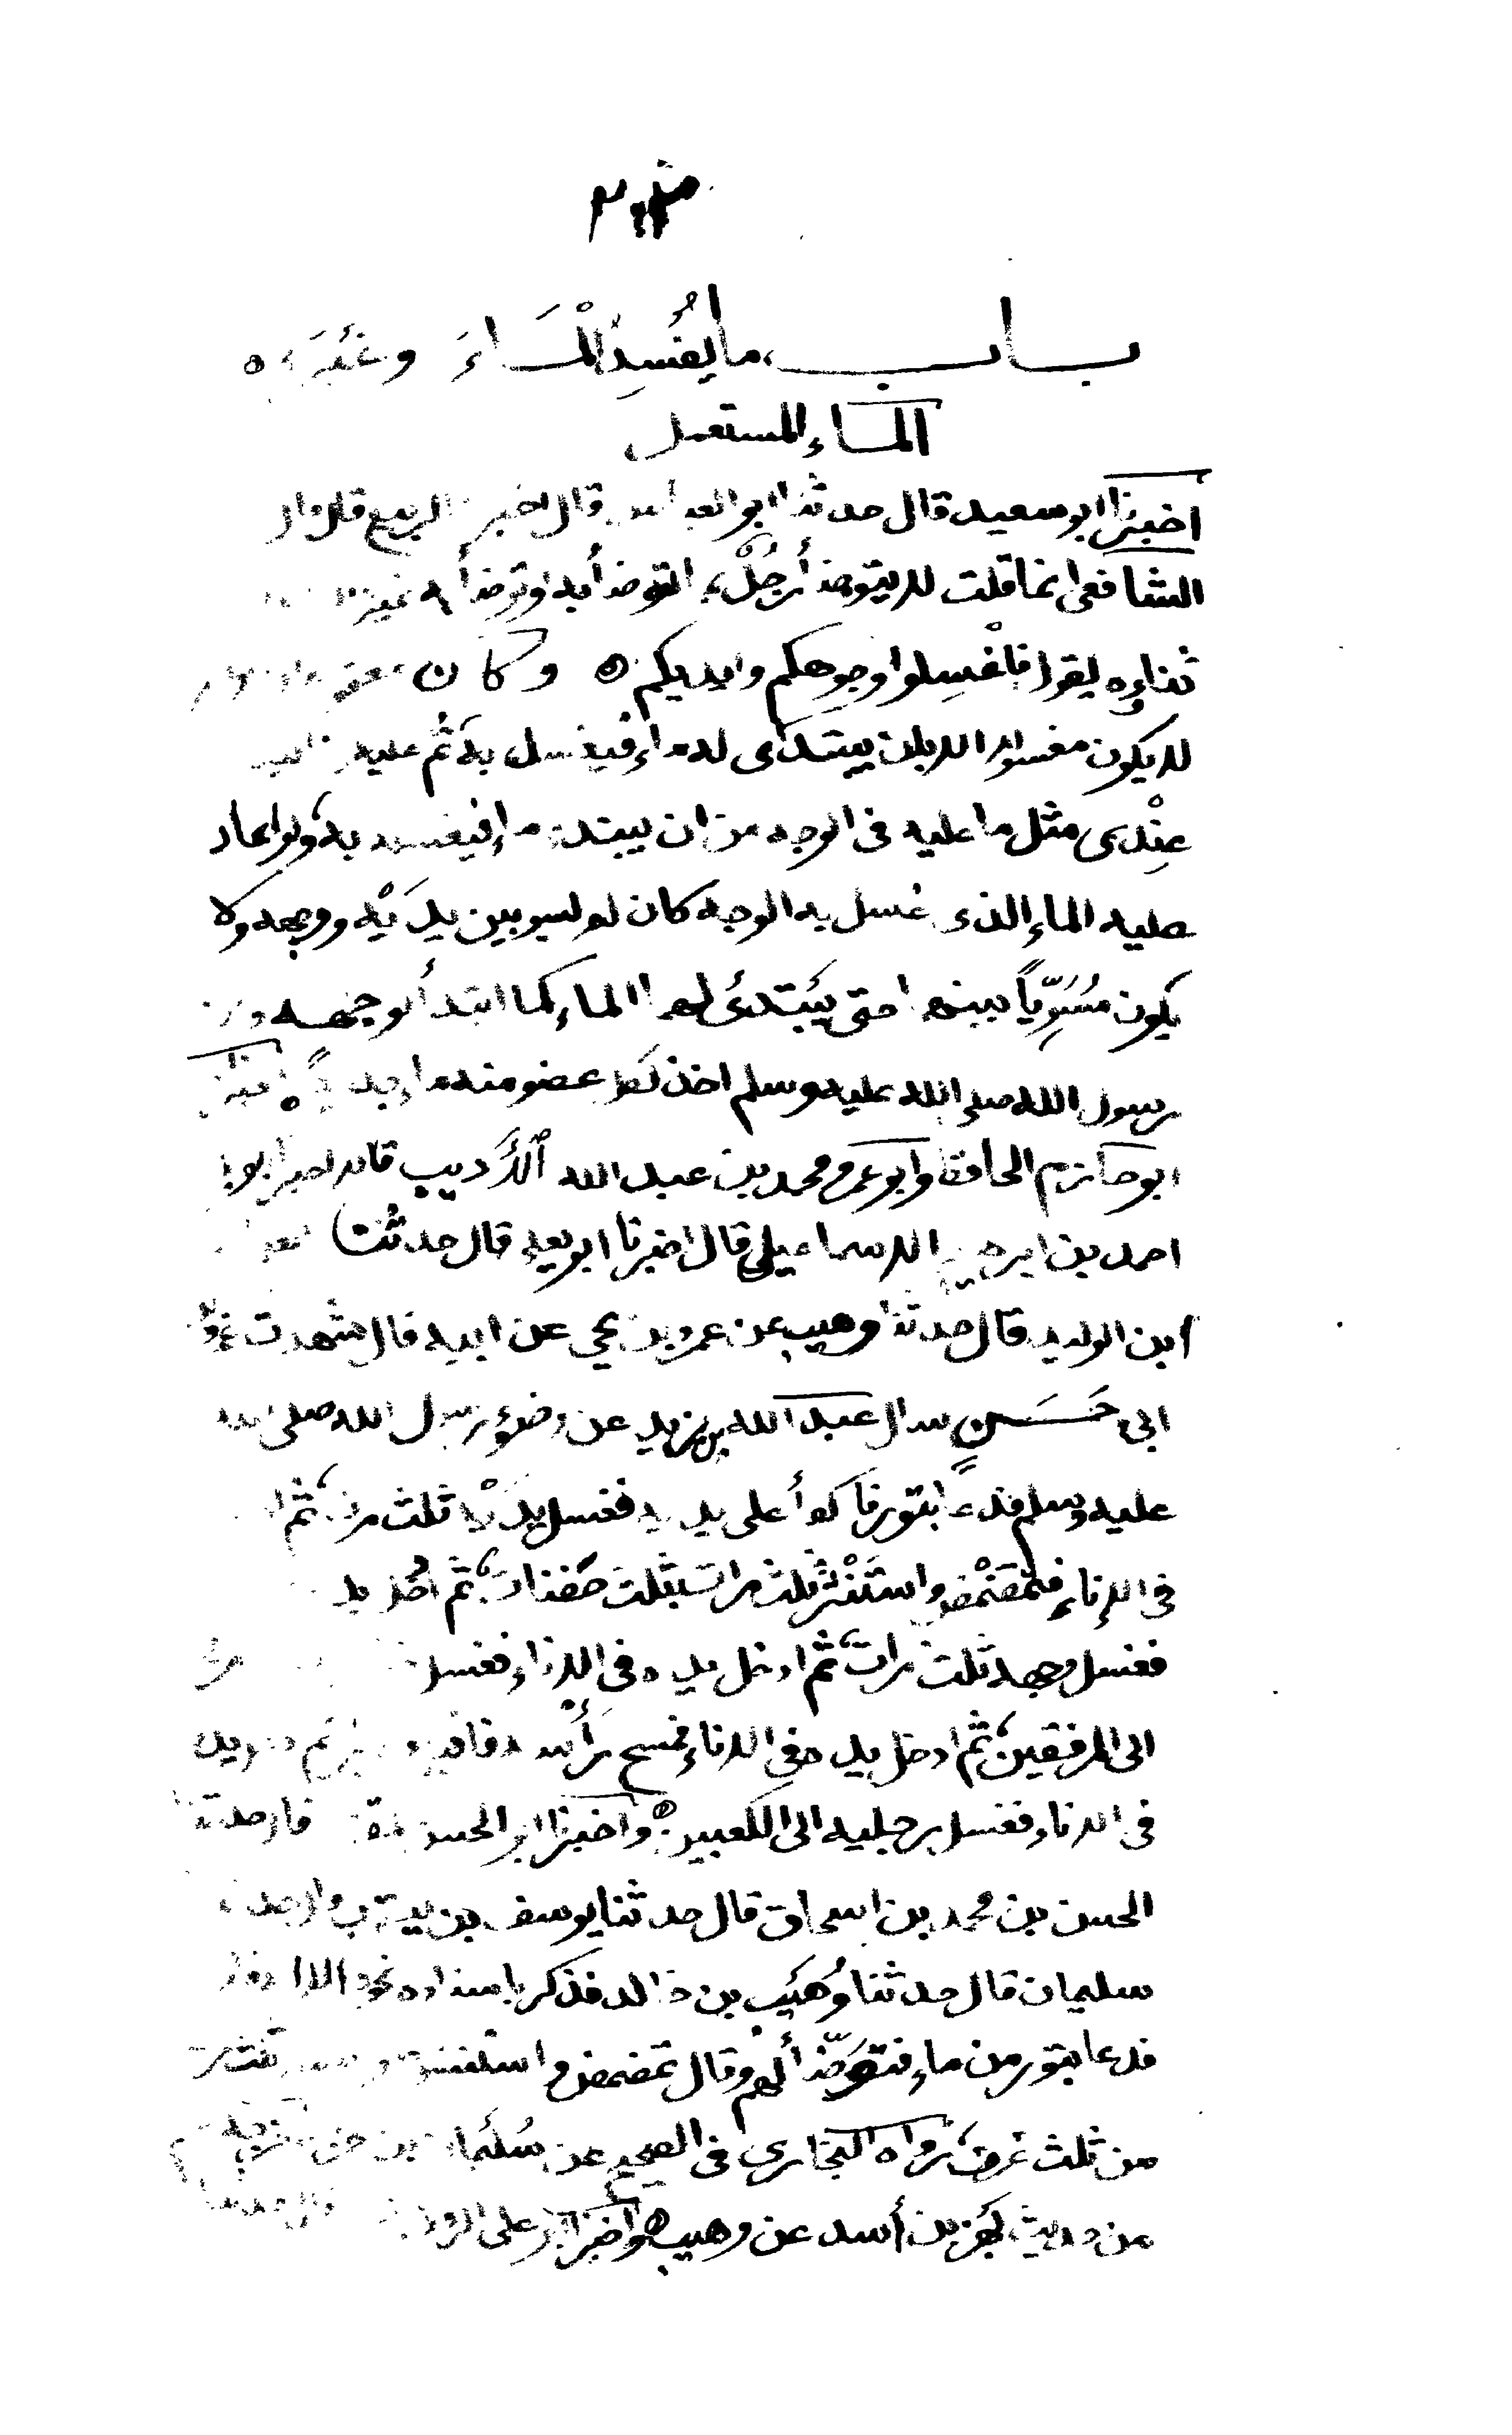 باب ما يفسد الماء وغيره
الماء المستعمل
اخبرنا ابو سعيد قال حدثنا ابو العباس قال اخبرنا الربيع قال قال
الشافعي انما قلت لا يتوضأ رجل بما توضأ به او توضأ به غيره
ثناؤه يقول فاغسلوا وجوهكم وايديكم ه وكان
لا يكون مغسولا الا بان يبتدئ له ماء فيغسل به ثم عليه
عندي مثل ما عليه في الوجه من ان يبتدئ ماء فيغسله به ولو اعاد
عليه الماء الذي غسل به الوجه كان لم يسو بين يديه ووجهه ولا
يكون مسويا بينهما حتى يبتدئ لهما الماء كما ابتدأ لوجهه
رسول الله صلى الله عليه وسلم اخذ لكل عضو منه ماء جديدا اخبرنا
ابو حازم الحافظ وابو عمرو محمد بن عبد الله الأديب قالا اخبرنا ابو بكر
احمد بن ابراهيم الاسماعيلي قال اخبرنا ابو يعلى قال حدثنا
ابن الوليد قال حدثنا وهيب عن عمرو بن يحيى عن ابيه قال شهدت عمرو
ابي حسن سال عبد الله بن زيد عن وضوء رسول الله صلى الله
عليه وسلم فدعا بتور فاكفأ على يديه فغسل يديه ثلث مرات ثم
في الاناء فتمضمض واستنثر ثلث مرات بثلث حفنات ثم ادخل يده
فغسل وجهه ثلث مرات ثم ادخل يده في الاناء فغسل
الى المرفقين ثم ادخل يده في الاناء فمسح برأسه فاقبل ثم ادخل يده
في الاناء فغسل رجليه الى الكعبين ه واخبرنا ابو الحسن المقرئ قال حدثنا
الحسن بن محمد بن اسحاق قال حدثنا يوسف بن يعقوب قال حدثنا
سليمان قال حدثنا وهيب بن خالد فذكر باسناده نحوه الا انه قال
فدعا بتور من ماء فتوضأ لهم وقال تمضمض واستنشق
من ثلث غرف رواه البخاري في الصحيح عن سليمان بن حرب
من حديث بهز بن أسد عن وهيب ه واخبرنا ابو علي الروذباري